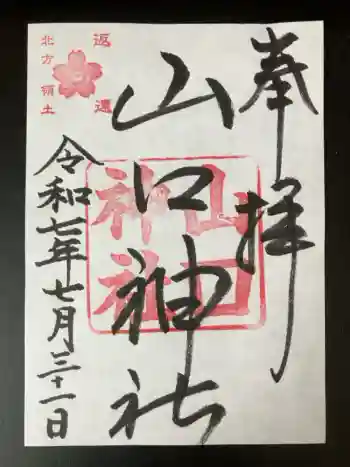 奉拝
山口神社
令和七年七月三十一日
返還
北方領土
山口
神社